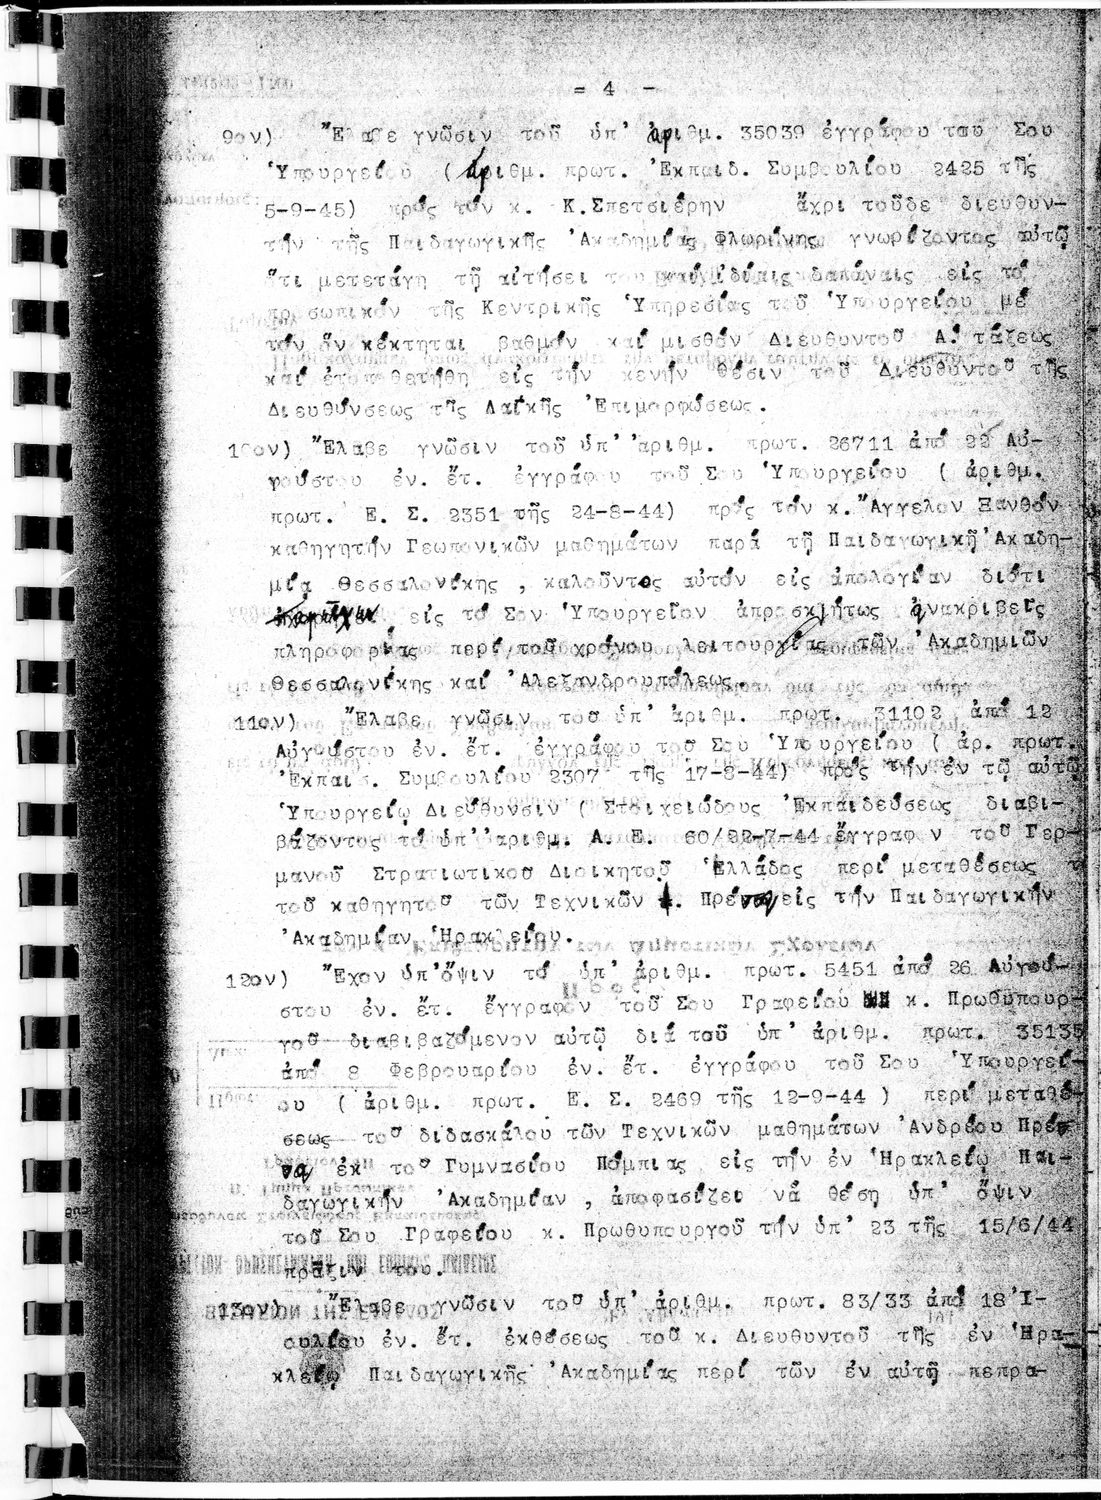 = 4 -
9ον) Ἔλαβε γνῶσιν τοῦ ὑπ' ἀριθμ. 35039 ἐγγράφου τοῦ Σου
Ὑπουργείου ( ἀριθμ. πρωτ. Ἐκπαιδ. Συμβουλίου 2425 τῆς
5-9-45) πρός τόν κ. Κ.Σπετσιέρην ἄχρι τοῦδε διευθυν-
τήν τῆς Παιδαγωγικῆς Ἀκαδημίας Φλωρίνης γνωρίζοντος αὐτῷ
ὅτι μετετάγη τῇ αἰτήσει του καί ἰδίαις δαπάναις εἰς τό
προσωπικόν τῆς Κεντρικῆς Ὑπηρεσίας τοῦ Ὑπουργείου μέ
τόν ὅν κέκτηται βαθμόν καί μισθόν Διευθυντοῦ Α. τάξεως
καί ἐτοποθετήθη εἰς τήν κενήν θέσιν τοῦ Διευθυντοῦ τῆς
Διευθύνσεως τῆς Λαϊκῆς Ἐπιμορφώσεως.
10ον) Ἔλαβε γνῶσιν τοῦ ὑπ' ἀριθμ. πρωτ. 26711 ἀπό 22 Αὐ-
γούστου ἐν. ἔτ. ἐγγράφου τοῦ Σου Ὑπουργείου ( ἀριθμ.
πρωτ. Ε. Σ. 2351 τῆς 24-8-44) πρός τόν κ. Ἄγγελον Ξανθόν
καθηγητήν Γεωπονικῶν μαθημάτων παρά τῇ Παιδαγωγικῇ Ἀκαδη-
μίᾳ Θεσσαλονίκης , καλοῦντος αὐτόν εἰς ἀπολογίαν διότι
εἰς τό Σον Ὑπουργεῖον ἀπροσκλήτως ἀνακριβεῖς
πληροφορίας περί τοῦ χρόνου λειτουργίας τῶν Ἀκαδημιῶν
Θεσσαλονίκης καί Ἀλεξανδρουπόλεως.
11ον) Ἔλαβε γνῶσιν τοῦ ὑπ' ἀριθμ. πρωτ. 31102 ἀπό 12
Αὐγούστου ἐν. ἔτ. ἐγγράφου τοῦ Σου Ὑπουργείου ( ἀρ. πρωτ.
Ἐκπαιδ. Συμβουλίου 2307 τῆς 17-8-44) πρός τήν ἐν τῷ αὐτῷ
Ὑπουργείῳ Διεύθυνσιν ( Στοιχειώδους Ἐκπαιδεύσεως διαβι-
βάζοντος τό ὑπ' ἀριθμ. Α. Ε. 60/22-7-44 ἔγγραφ ν τοῦ Γερ-
μανοῦ Στρατιωτικοῦ Διοικητοῦ Ἑλλάδος περί μεταθέσεως
τοῦ καθηγητοῦ τῶν Τεχνικῶν κ. Πρέναη εἰς τήν Παιδαγωγικήν
Ἀκαδημίαν Ἡρακλείου.
12ον) Ἔχον ὑπ' ὄψιν τό ὑπ' ἀριθμ. πρωτ. 5451 ἀπό 26 Αὐγού-
στου ἐν. ἔτ. ἔγγραφον τοῦ Σου Γραφείου κ. Πρωθυπουρ-
γοῦ διαβιβαζόμενον αὐτῷ διά τοῦ ὑπ' ἀριθμ. πρωτ. 35135
ἀπό 8 Φεβρουαρίου ἐν. ἔτ. ἐγγράφου τοῦ Σου Ὑπουργεί-
ου ( ἀριθμ. πρωτ. Ε. Σ. 2469 τῆς 12-9-44 ) περί μεταθέ-
σεως τοῦ διδασκάλου τῶν Τεχνικῶν μαθημάτων Ἀνδρέου
ἐκ τοῦ Γυμνασίου Πόμπιας εἰς τήν ἐν Ἡρακλείῳ Παι-
δαγωγικήν Ἀκαδημίαν , ἀποφασίζει νά θέσῃ ὑπ' ὄψιν
τοῦ Σου Γραφείου κ. Πρωθυπουργοῦ τήν ὑπ' 23 τῆς 15/6/44
πρᾶξιν του.
13ον) Ἔλαβε γνῶσιν τοῦ ὑπ' ἀριθμ. πρωτ. 83/33 ἀπό 18 Ἰ-
ουλίου ἐν. ἔτ. ἐκθέσεως τοῦ κ. Διευθυντοῦ τῆς ἐν Ἡρα-
κλείῳ Παιδαγωγικῆς Ἀκαδημίας περί τῶν ἐν αὐτῇ πεπρα-